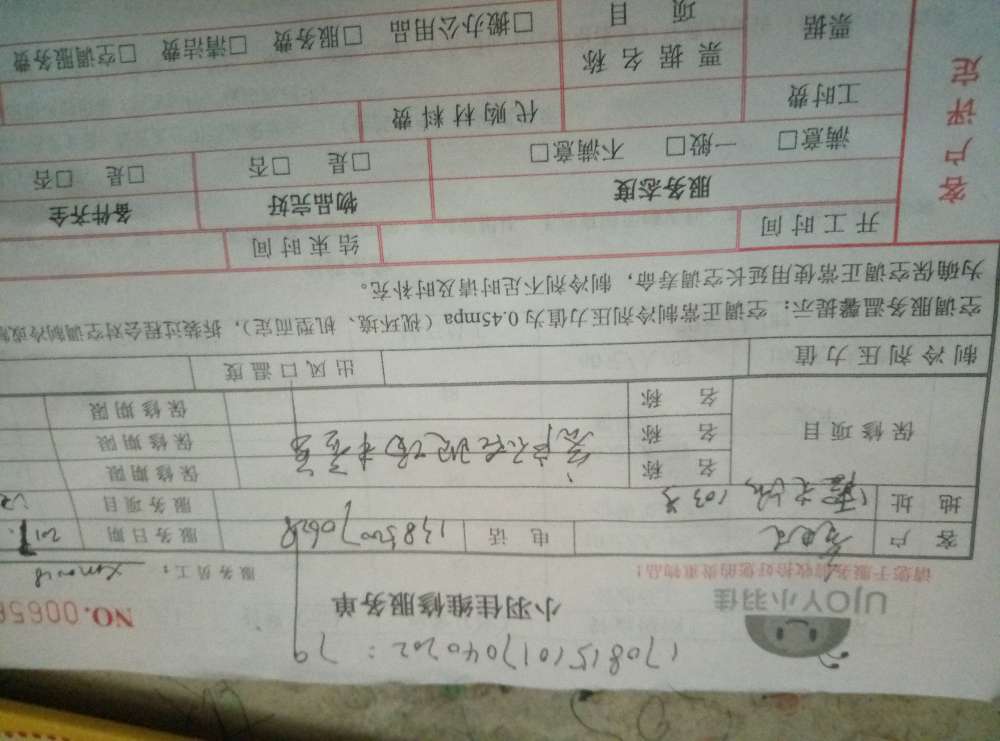 1708151017040202 = 79
UJOY小羽佳
小羽佳维修服务单
NO. 00656
请您于服务前收拾好您的贵重物品！
服务员工：
客 户
电 话
服务日期 201
地 址 103号
服务项目
保修项目
名 称
保修期限
名 称
保修期限
名 称
保修期限
制冷剂压力值
出风口温度
空调服务温馨提示：空调正常制冷剂压力值为0.45mpa（视环境、机型而定），拆装过程会对空调制冷或制
为确保空调正常使用延长空调寿命，制冷剂不足时请及时补充。
客户评定
开工时间
结束时间
服务态度
物品完好
备件齐全
满意□ 一般□ 不满意□
□是 □否
□是 □否
工时费
代购材料费
票据
票据名称
项 目
□搬办公用品 □服务费 □清洁费 □空调服务费